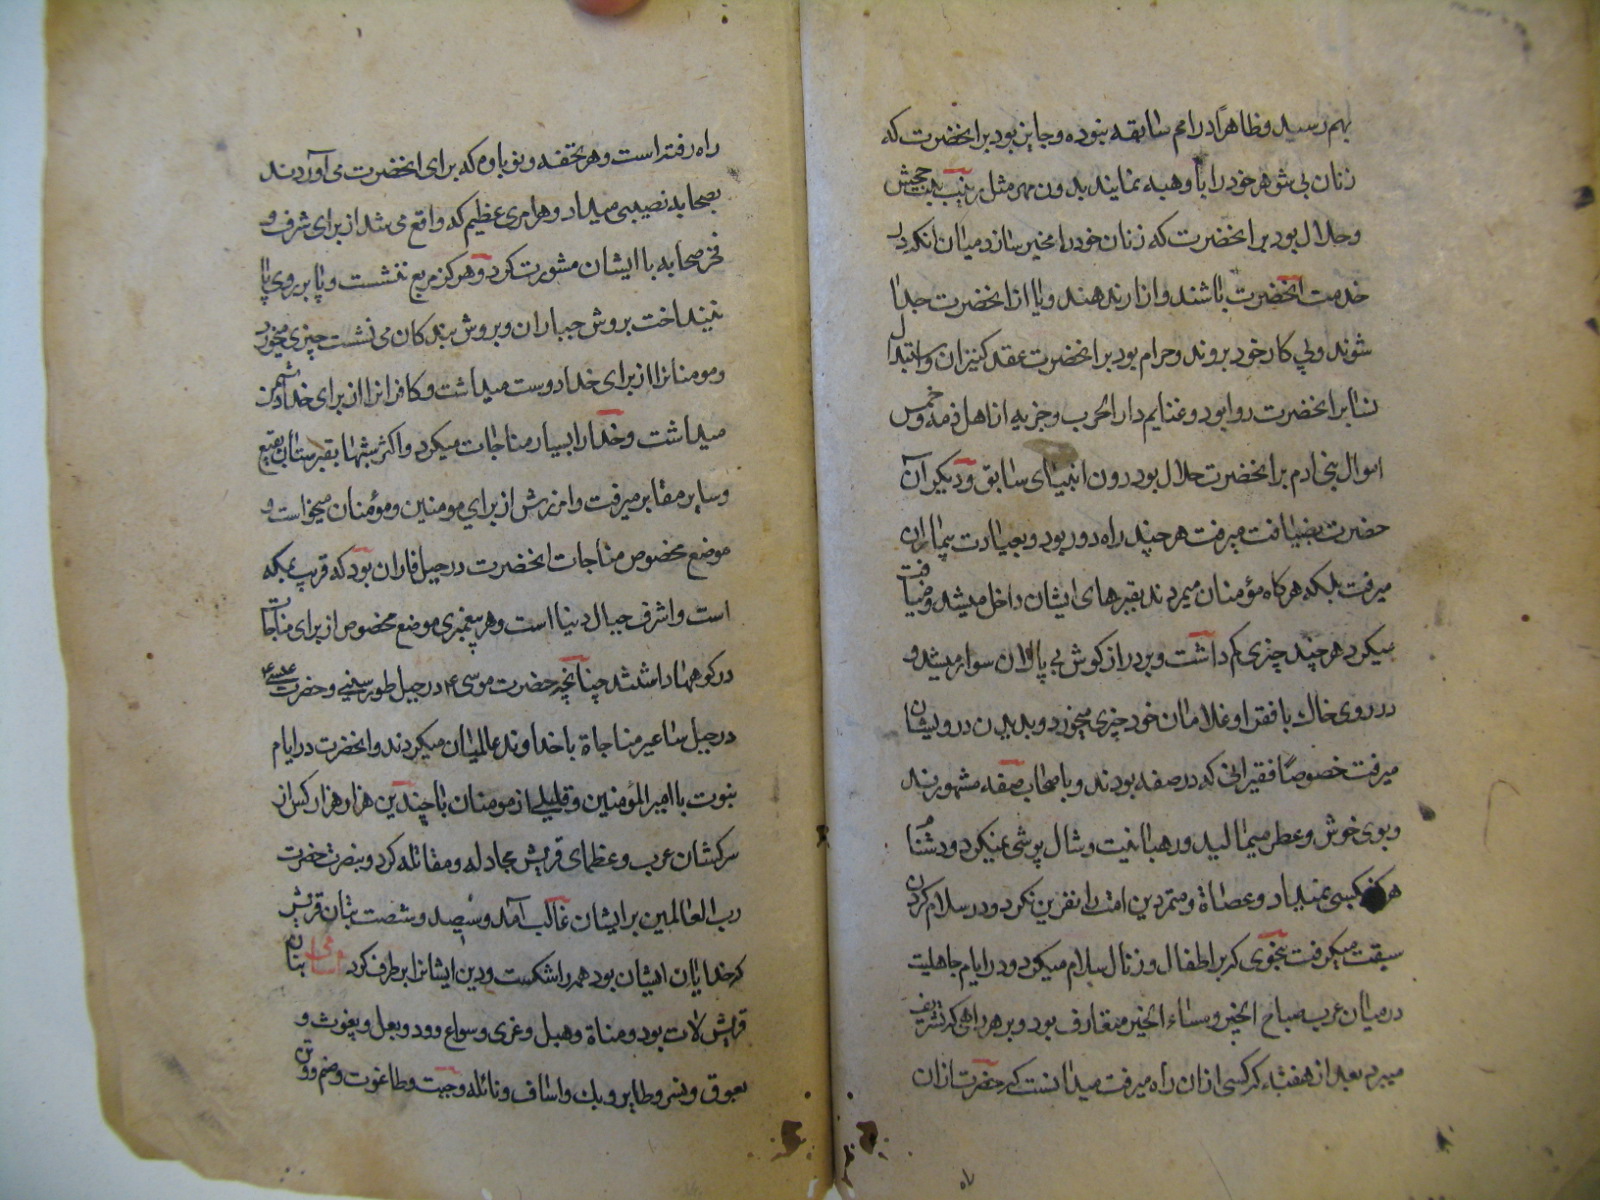 بهم رسید و ظاهراً در امم سابقه نبوده و جایز بود بر انحضرت که
زنان بی شوهر خود را باو هبه نمایند بدون مهر مثل زینب بنت جحش
و حلال بود بر انحضرت که زنان خود را مخیر سازد میان انکه در
خدمت انحضرت باشند و ازار ندهند و یا از انحضرت جدا
شوند و پی کار خود بروند و حرام بود بر انحضرت عقد کنیزان و استبدال
نسا بر انحضرت روا بود و غنایم دار الحرب و جزیه از اهل ذمه و خمس
اموال بنی ادم بر انحضرت حلال بود دون انبیای سابق و دیکر آن
حضرت بضیافت میرفت هر چند راه دور بود و بعیادت بیماران
میرفت بلکه هر کاه مؤمنان میمردند بقبرهای ایشان داخل میشد و ضیافت
میکرد هر چند چیزی کم داشت و بر دراز کوش بی پالان سوار میشد و
در روی خاک با فقرا و غلامان خود چیزی میخورد و بدیدن درویشان
میرفت خصوصاً فقیرانی که در صفه بودند و باصحاب صفه مشهورند
و بوی خوش و عطر میمالید و رهبانیت و شال پوشی نمیکرد و دشنام
هرکز بکسی نمیداد و عصاة و متمردین امت را نفرین نکرد و در سلام کردن
سبقت میکرفت بنحوی که بر اطفال و زنان سلام میکرد و در ایام جاهلیت
در میان عرب صباح الخیر و مساء الخیر متعارف بود و بر هر راهی که تشریف
میبرد بعد از هفته اکر کسی ازان راه میرفت میدانست که حضرت ازان
راه رفته است و هر تحفه و نوباوه که برای انحضرت می آوردند
بصحابه نصیبی میداد و هر امری عظیم که واقع می شد از برای شرف و
فخر صحابه با ایشان مشورت کرد و هرکز مربع ننشست و پا بر روی پا
نینداخت بروش جباران و بروش بندکان می نشست چیزی میخورد
و مومنانرا از برای خدا دوست میداشت و کافرانرا از برای خدا دشمن
میداشت و خدا را بسیار مناجات میکرد و اکثر شبها بقبرستان بقیع
و سایر مقابر میرفت و امرزش از برای مومنین و مؤمنان میخواست و
موضع مخصوص مناجات انحضرت در جبل فاران بود که قریب بمکه
است و اشرف جبال دنیا است و هر پیغمبری موضع مخصوص از برای مناجات
در کوهها داشتند چنانچه حضرت موسی ع در جبل طور سینی و حضرت عیسی ع
در جبل ساعیر مناجاة با خداوند عالمیان میکردند و انحضرت در ایام
نبوت با امیر المؤمنین و قلیلی از مومنان با چندین هزار هزار کس از
سرکشان عرب و عظمای قریش مجادله و مقاتله کرد و بنصرت حضرت
رب العالمین بر ایشان غالب آمد و سیصد و شصت بتان قریش
که خدایان ایشان بود همه را شکست و دین ایشانرا بر طرف کرد اسامی بتان
قریش لات بود و مناة و هبل و عزی و سواع و ود و بعل و یغوث و
یعوق و نسر و طایر و بک و اساف و نائله و جبت و طاغوت و صنم و وثن